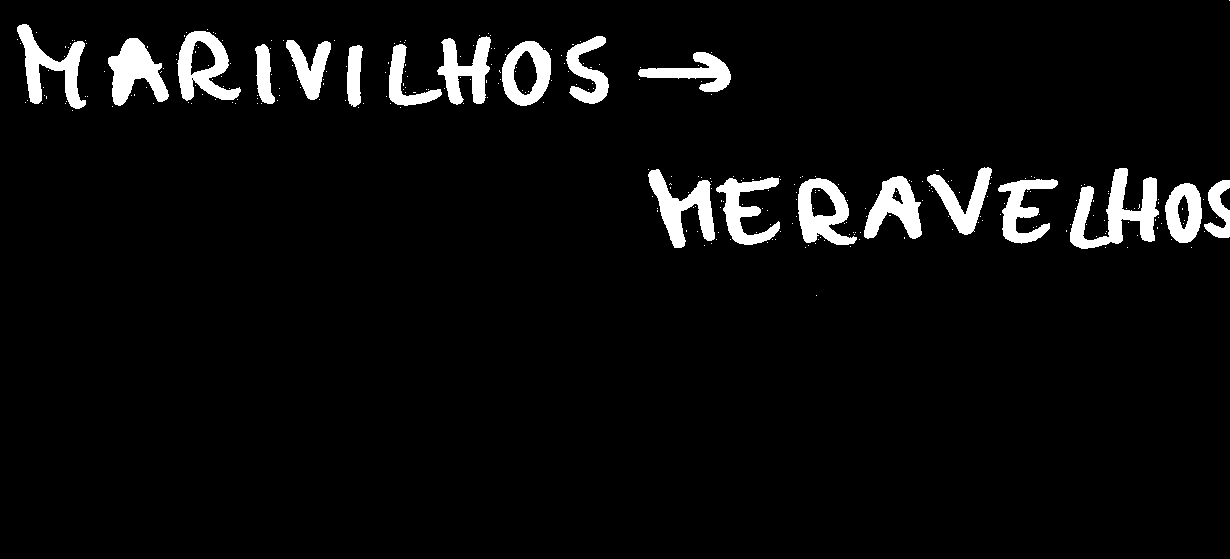 MARIVILHOS →
MERAVELHOS